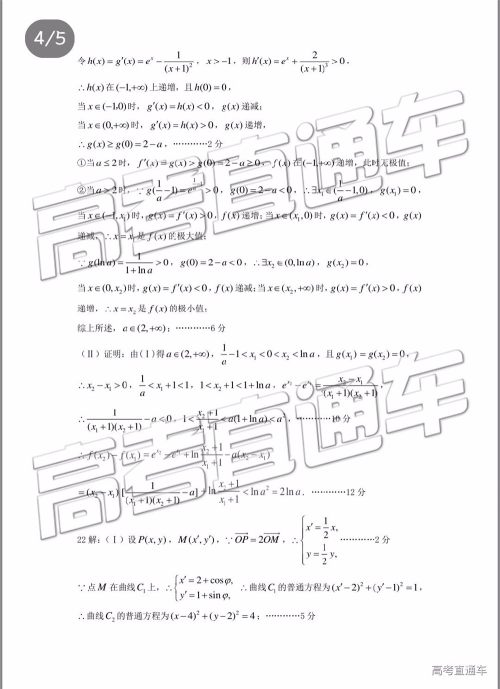 4/5
令h(x)=g′(x)=e^x−1/(x+1)^2，x>−1，则h′(x)=e^x+2/(x+1)^3>0，
∴h(x)在(−1,+∞)上递增，且h(0)=0，
当x∈(−1,0)时，g′(x)=h(x)<0，g(x)递减；
当x∈(0,+∞)时，g′(x)=h(x)>0，g(x)递增，
∴g(x)≥g(0)=2−a，…………2分
①当a≤2时，f′(x)=g(x)>g(0)=2−a≥0，f(x)在(−1,+∞)递增，此时无极值；
②当a>2时，∵g(1/a−1)=e^(1/a−1)>0，g(0)=2−a<0，∴∃x₁∈(1/a−1,0)，g(x₁)=0，
当x∈(−1,x₁)时，g(x)=f′(x)>0，f(x)递增；当x∈(x₁,0)时，g(x)=f′(x)<0，g(x)
递减，∴x=x₁是f(x)的极大值；
∵g(ln a)=1/(1+ln a)>0，g(0)=2−a<0，∴∃x₂∈(0,ln a)，g(x₂)=0，
当x∈(0,x₂)时，g(x)=f′(x)<0，f(x)递减；当x∈(x₂,+∞)时，g(x)=f′(x)>0，f(x)
递增，∴x=x₂是f(x)的极小值；
综上所述，a∈(2,+∞)；…………6分
（Ⅱ）证明：由（Ⅰ）得a∈(2,+∞)，1/a−1<x₁<0<x₂<ln a，且g(x₁)=g(x₂)=0，
∴x₂−x₁>0，1/a<x₁+1<1，1<x₂+1<1+ln a，e^(x₂)−e^(x₁)=(x₂−x₁)/((x₁+1)(x₂+1))，
∴1/((x₁+1)(x₂+1))−a<0，1<(x₂+1)/(x₁+1)<a(1+ln a)<a²，…………10分
∴f(x₂)−f(x₁)=e^(x₂)−e^(x₁)+ln (x₂+1)/(x₁+1)−a(x₂−x₁)
=(x₂−x₁)[1/((x₁+1)(x₂+1))−a]+ln (x₂+1)/(x₁+1)<ln a²=2ln a．…………12分
22解：（Ⅰ）设P(x,y)，M(x′,y′)，∵OP=2OM，∴{x′=1/2 x, y=1/2 y, …………2分
∵点M在曲线C₁上，∴{x′=2+cosφ, y′=1+sinφ, ∴曲线C₁的普通方程为(x′−2)²+(y′−1)²=1，
∴曲线C₂的普通方程为(x−4)²+(y−2)²=4；…………5分
高考直通车
高考直通车
高考直通车
高考直通车